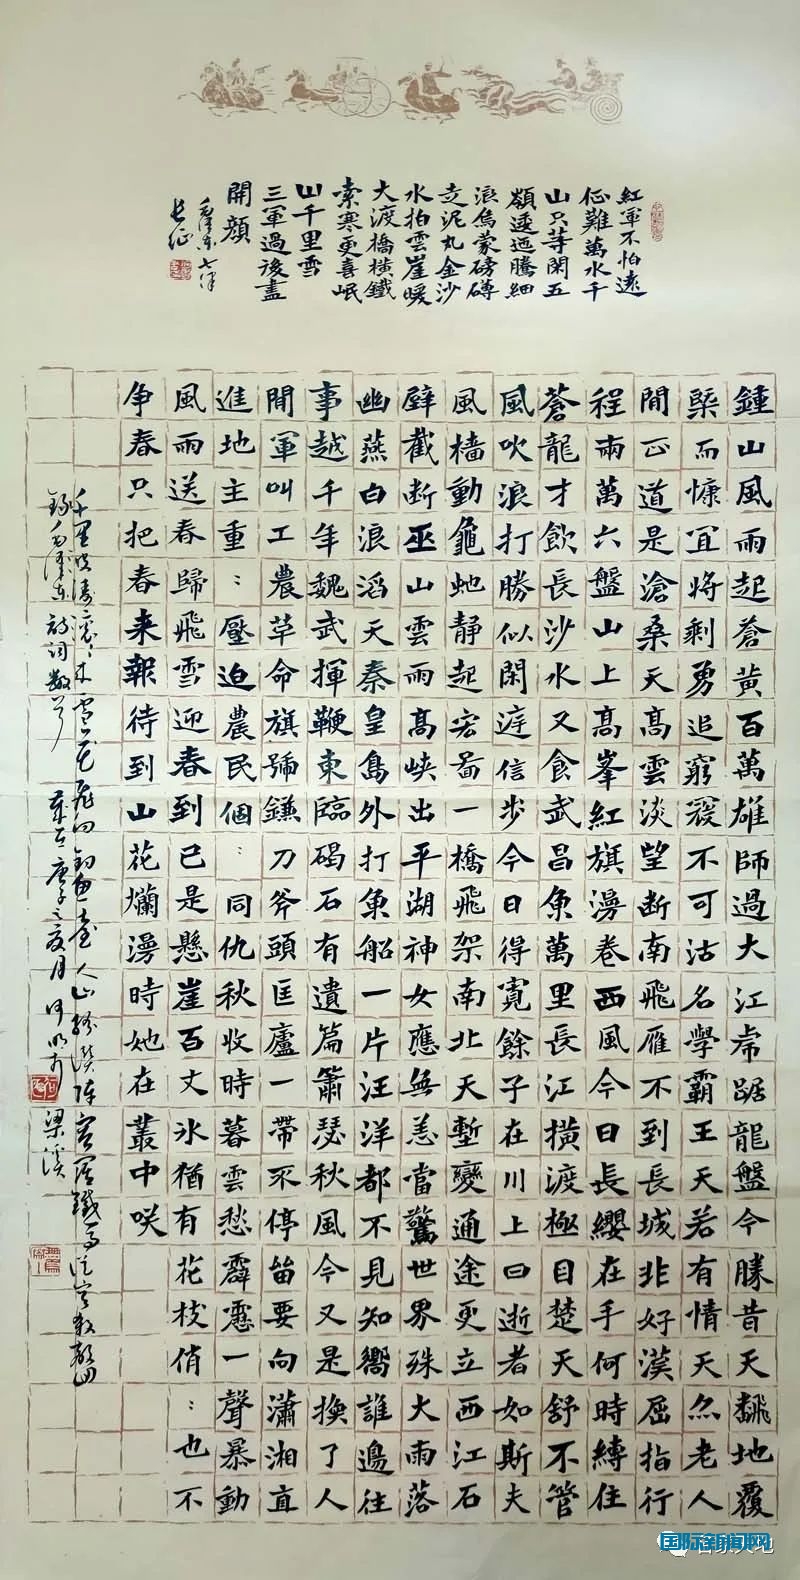 紅軍不怕遠
征難萬水千
山只等閑五
嶺逶迤騰細
浪烏蒙磅礡
走泥丸金沙
水拍雲崖暖
大渡橋橫鐵
索寒更喜岷
山千里雪
三軍過後盡
開顏
毛澤東七律
長征
鍾山風雨起蒼黃百萬雄師過大江虎踞龍盤今勝昔天翻地覆
槩而慷宜將剩勇追窮寇不可沽名學霸王天若有情天亦老人
間正道是滄桑天高雲淡望断南飛雁不到長城非好漢屈指行
程兩萬六盤山上高峯紅旗漫卷西風今日長纓在手何時縛住
蒼龍才飲長沙水又食武昌魚萬里長江橫渡極目楚天舒不管
風吹浪打勝似閑庭信步今日得寬餘子在川上曰逝者如斯夫
風檣動龜虵静起宏啚一橋飛架南北天塹變通途更立西江石
壁截断巫山雲雨高峽出平湖神女應無恙當驚世界殊大雨落
幽燕白浪滔天秦皇島外打魚船一片汪洋都不見知嚮誰邊往
事越千年魏武揮鞭東臨碣石有遺篇蕭瑟秋風今又是換了人
間軍叫工農革命旗號鎌刀斧頭匡廬一帶不停留要向瀟湘直
進地主重:壓迫農民個:同仇秋收時暮雲愁霹靂一聲暴動
風雨送春歸飛雪迎春到已是懸崖百丈冰猶有花枝俏:也不
争春只把春来報待到山花爛漫時她在叢中咲
千里波濤滾:來雪花飛向釣魚臺人山紛讚陣容闊鐵馬從容殺敵回
錄毛澤東詩詞數首 庚子之夏月 梁溪
国际新闻网